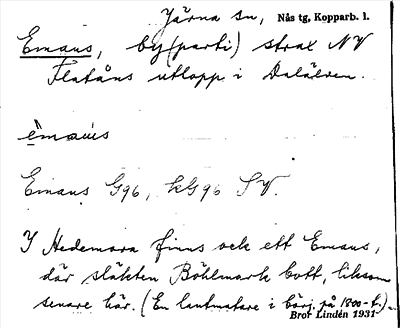 Järna sn, Nås tg, Kopparb. l.
Emaus, by(parti) strax NV
Flatåns utlopp i Dalälven.
èmaus
Emaus G96, kG96 SV.
I Hedemora finns ock ett Emaus,
där släkten Böhlmark bott, liksom
senare här. (En lantmätare i börj. på 1800-t.).
Bror Lindén 1931